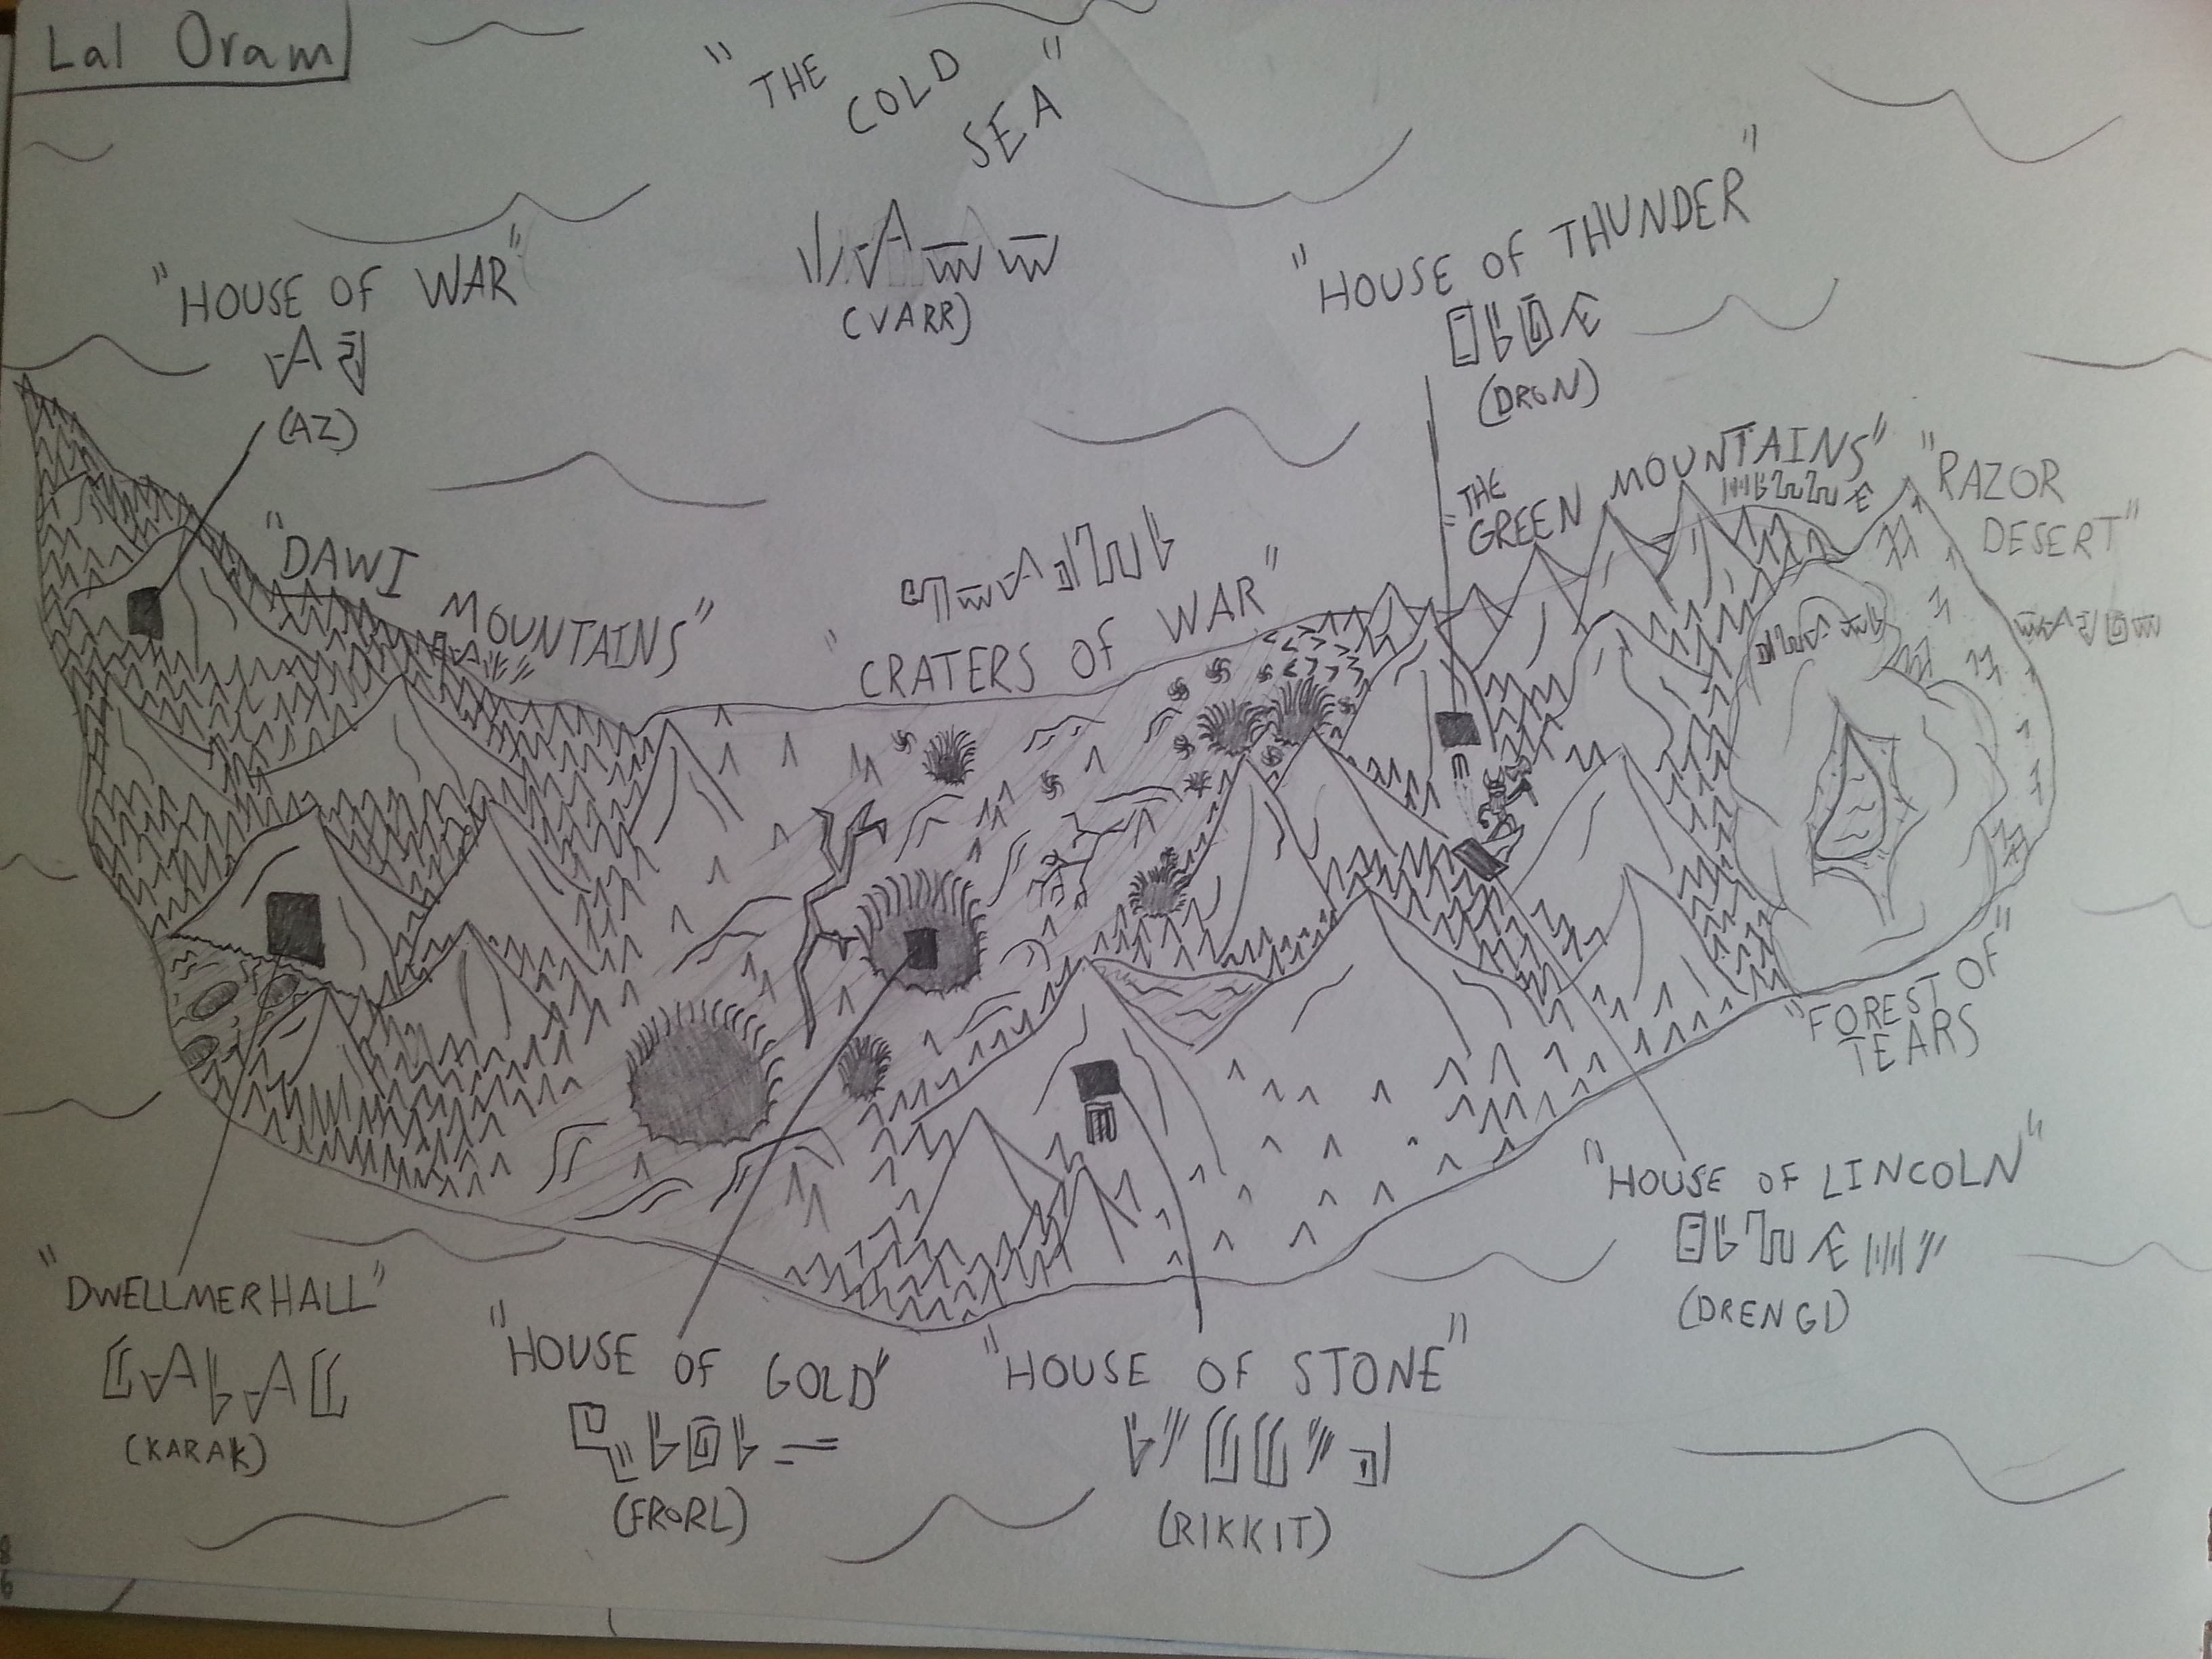 Lal Oram
"THE
COLD
SEA"
(VARR)
"HOUSE OF WAR"
(AZ)
"HOUSE OF THUNDER"
(DRON)
"THE
GREEN MOUNTAINS"
"RAZOR
DESERT"
"DAWI
MOUNTAINS"
"CRATERS OF WAR"
"FOREST OF"
TEARS
"HOUSE OF LINCOLN"
(DRENGI)
"DWELLMERHALL"
(KARAK)
"HOUSE OF GOLD"
(FRORL)
"HOUSE OF STONE"
(RIKKIT)